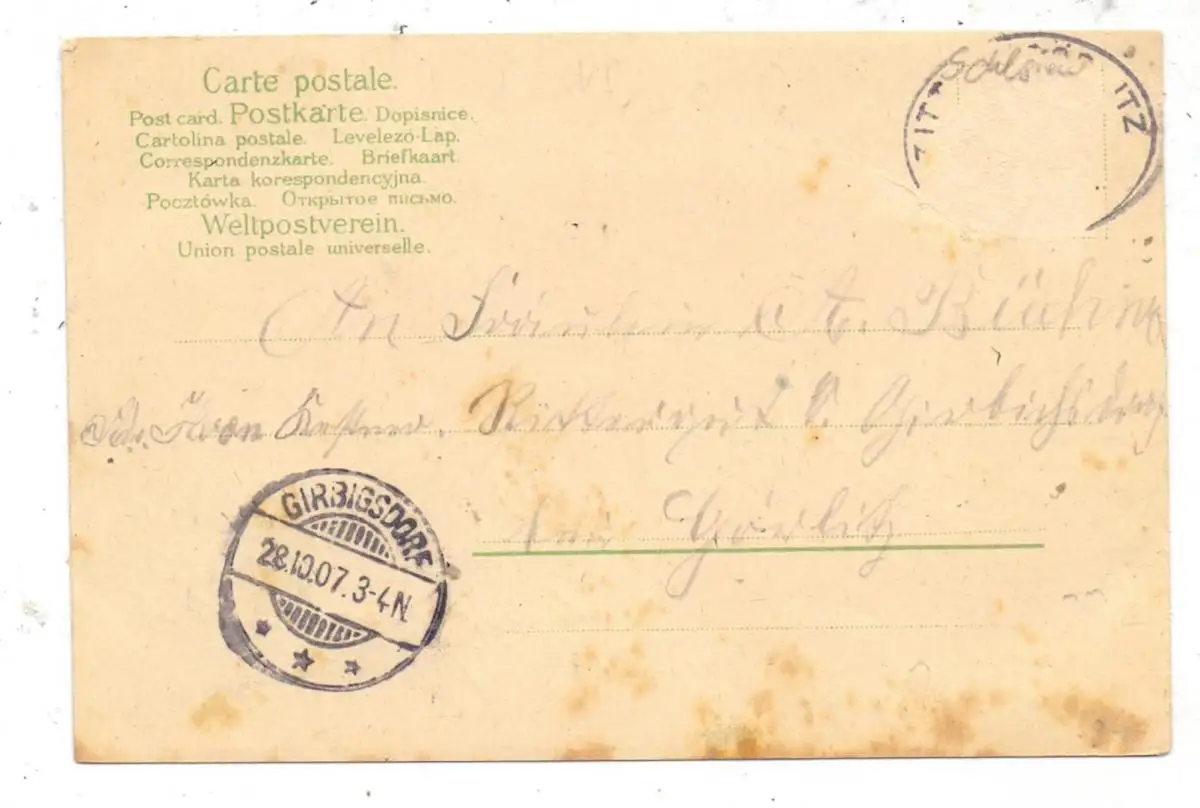 Carte postale.
Post card. Postkarte. Dopisnice.
Cartolina postale. Levelező-Lap.
Correspondenzkarte. Briefkaart.
Karta korespondencyjna.
Pocztówka. Открытое письмо.
Weltpostverein.
Union postale universelle.
ZIT ITZ
An Fräulein A.
Girbichsdorf
Görlitz
GIRBIGSDORF
28.10.07.3-4N